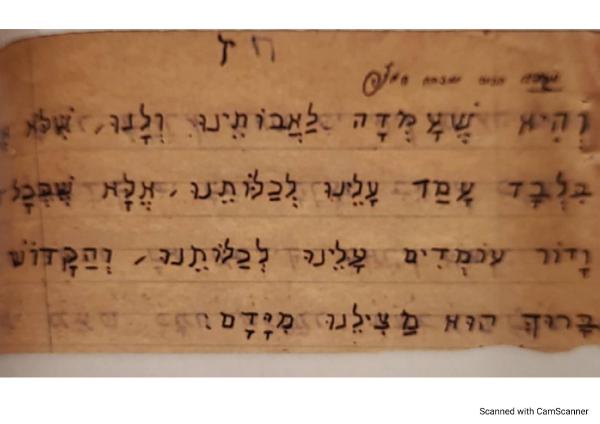 ח ץ
וְהִיא שֶׁעָמְדָה לַאֲבוֹתֵינוּ וְלָנוּ, שֶׁלֹּא
בִּלְבָד עָמַד עָלֵינוּ לְכַלּוֹתֵנוּ, אֶלָּא שֶׁבְּכָל
וָדוֹר עוֹמְדִים עָלֵינוּ לְכַלּוֹתֵנוּ, וְהַקָּדוֹשׁ
בָּרוּךְ הוּא מַצִּילֵנוּ מִיָּדָם:
Scanned with CamScanner